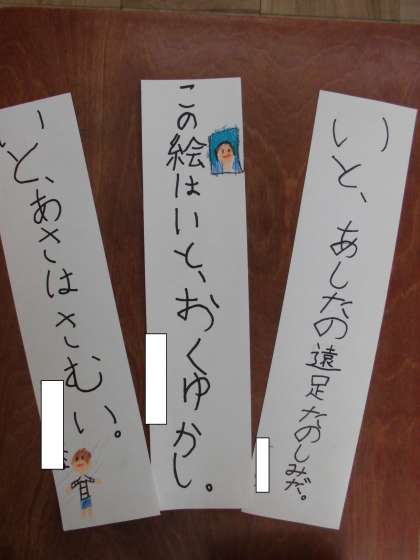 いと、あしたの遠足たのしみだ。
この絵はいと、おくゆかし。
いと、あさはさむい。